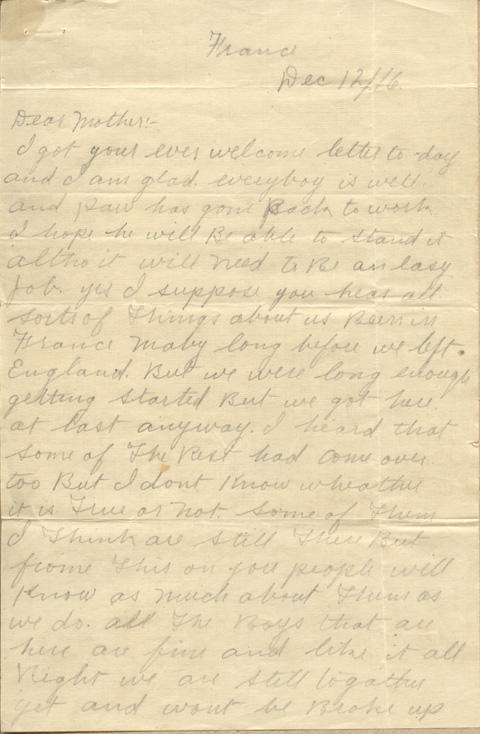 France
Dec 12/16.
Dear Mother:-
I got your ever welcome letter to-day
and I am glad. everyboy is well.
and paw has gone Back to work
I hope he will Be able to stand it
altho it will need to Be an easy
Job. yes I suppose you hear all
sorts of Things about us Been in
France maby long before we left.
England. But we were long enough
getting started But we got here
at last anyway. I heard that
some of The Rest had come over
too But I dont Know wheather
it is True or not. some of Them
I Think are still There But
frome This on you people will
Know as much about Them as
we do. all The Boys that are
here are fine and like it all
Right we are still togather
yet and wont be Broke up